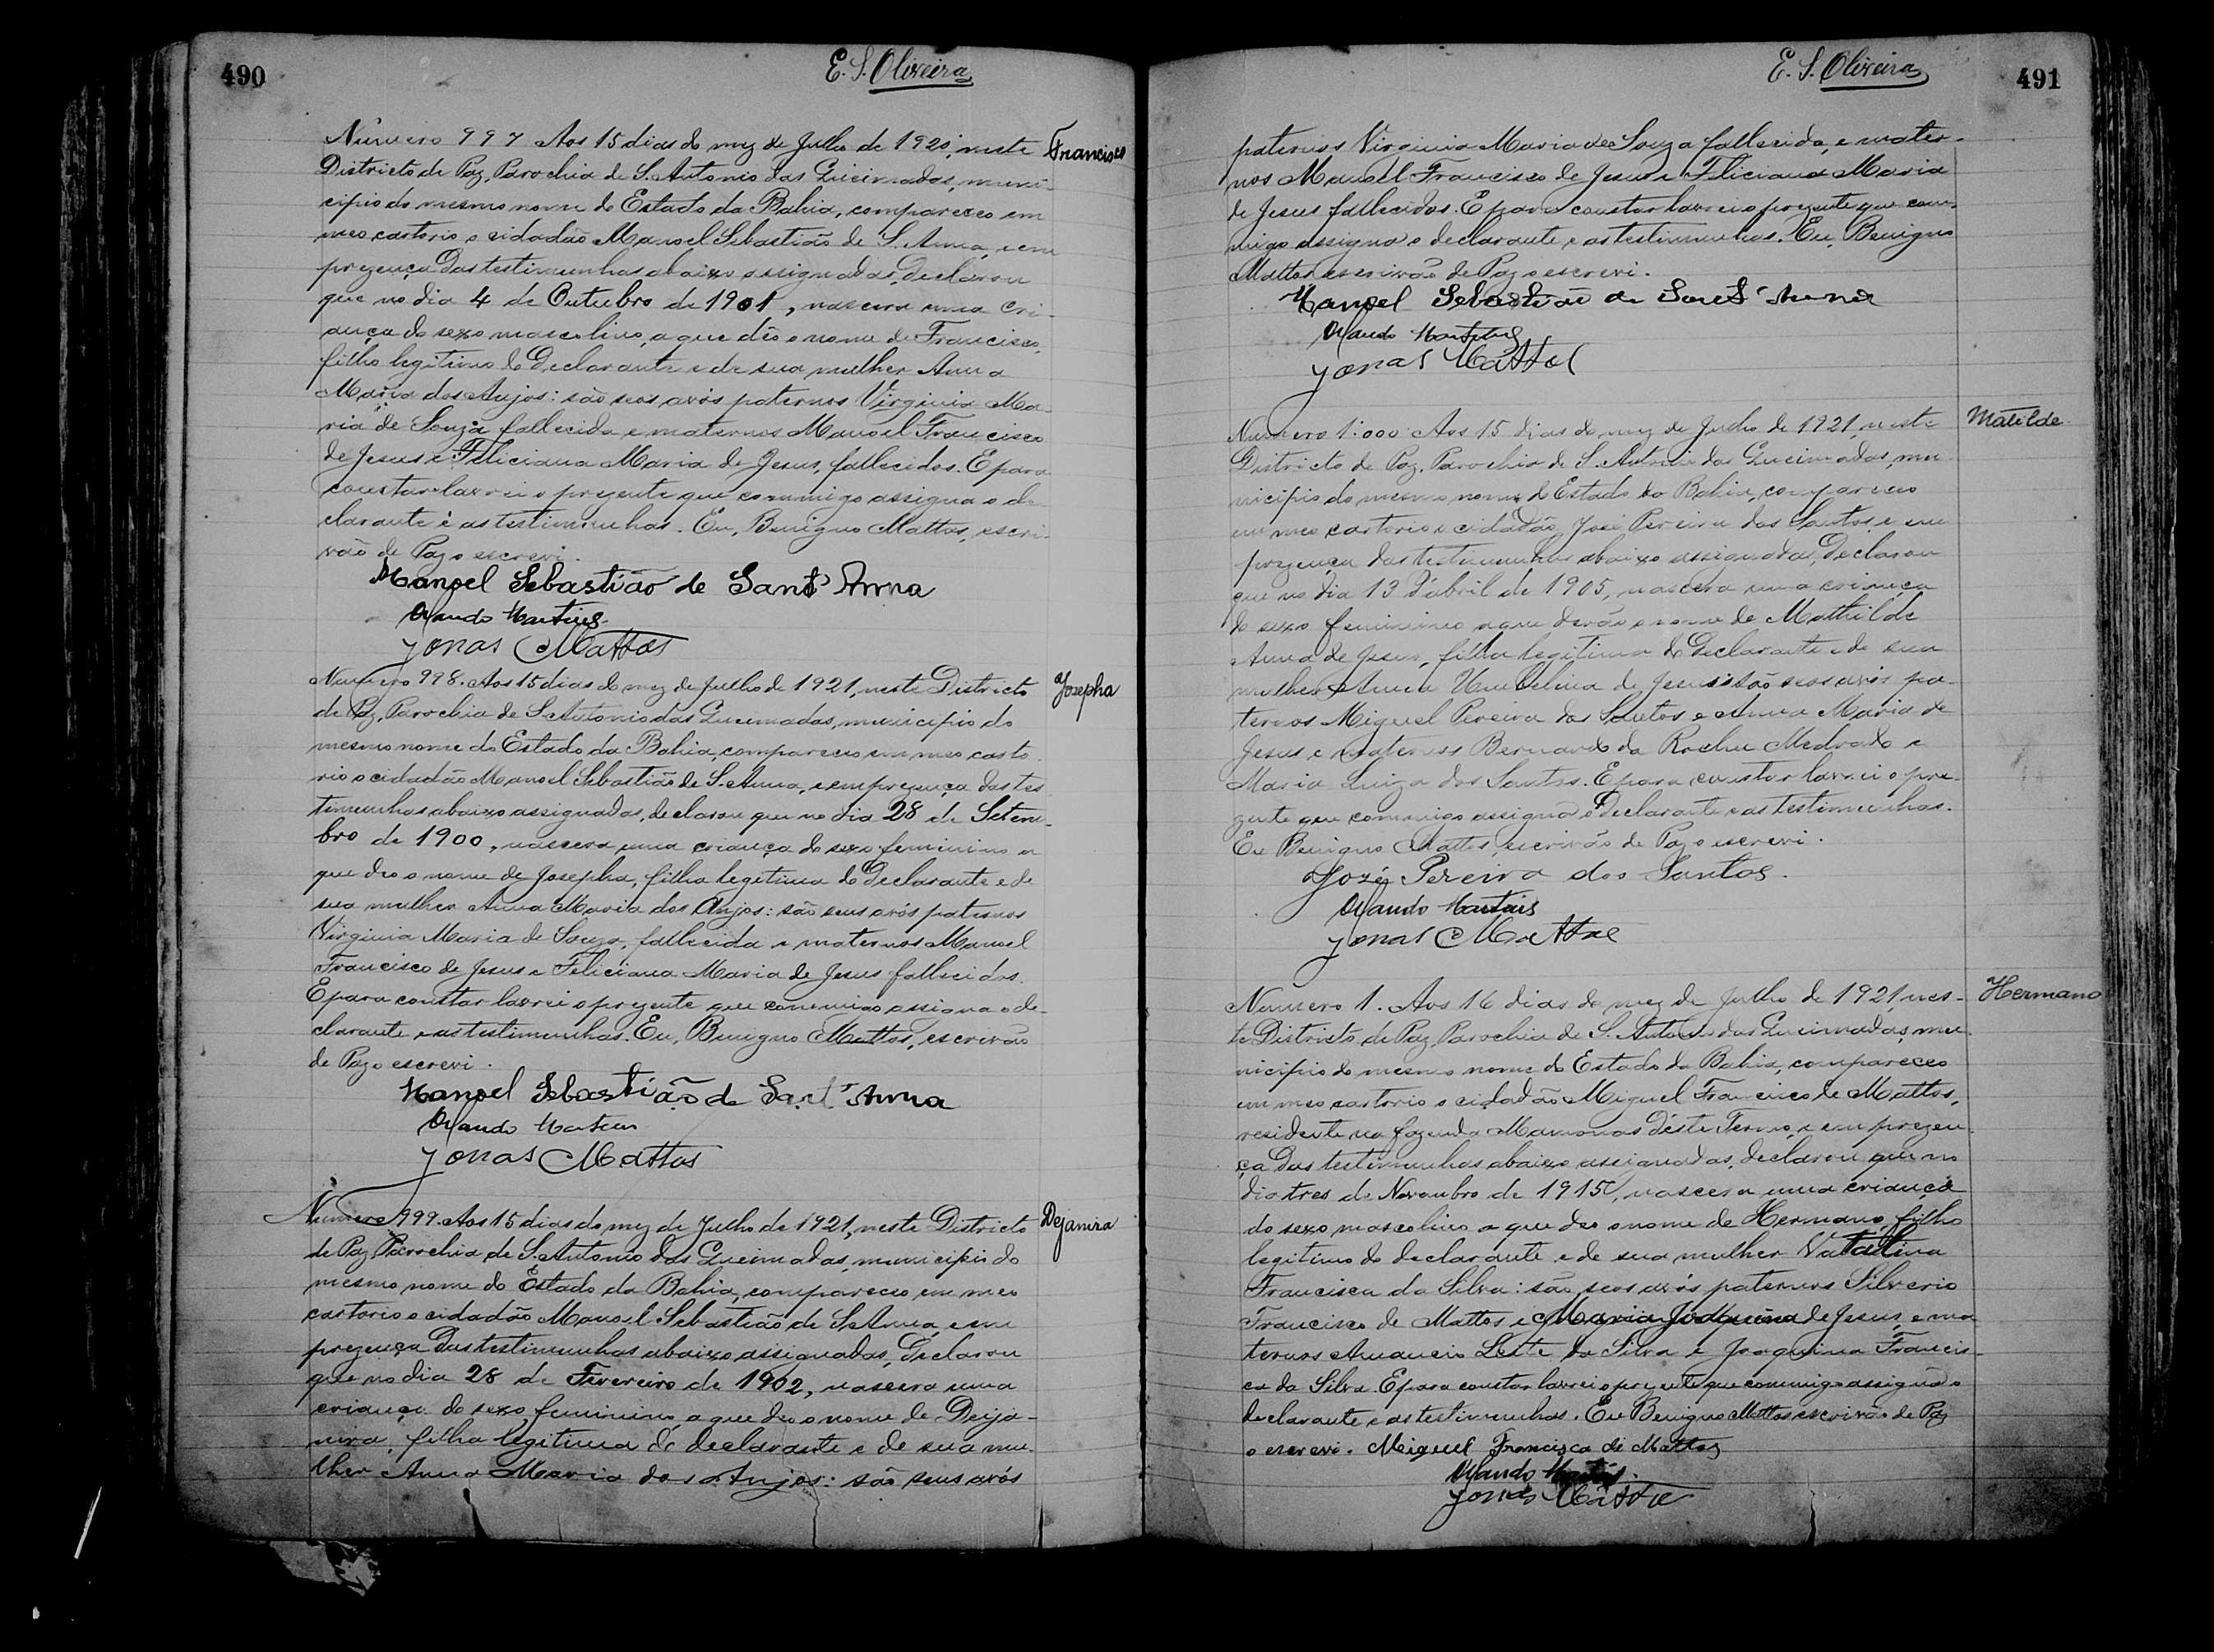 490
E. S. Oliveira
Número 997 Aos 15 dias do mez de Julho de 1921, neste
Francisco
Districto de Paz, Parochia de S. Antonio das Queimadas, muni-
cipio do mesmo nome do Estado da Bahia, compareceo em
meo cartorio o cidadão Manoel Sebastião de S. Anna, e em
prezença das testimunhas abaixo assignadas, declarou
que no dia 4 de Outubro de 1901, nascera uma cri-
ança do sexo mascolino, a que dêo o nome de Francisco,
filho legitimo do Declarante e de sua mulher Anna
Maria dos Anjos: são seos avós paternos Virginia Ma-
ria de Souza fallecida e maternos Manoel Francisco
de Jesus e Feliciana Maria de Jesus, fallecidos. E para
constar lavrei o prezente que commigo assigna o de-
clarante e as testimunhas. Eu, Benigno Mattos, escri-
vão de Paz o escrevi.
Manoel Sebastião de Sant'Anna
Orlando Martins
Jonas Mattos
Numero 998. Aos 15 dias do mez de Julho de 1921, neste Districto
Jozepha
de Paz, Parochia de S. Antonio das Queimadas, municipio do
mesmo nome do Estado da Bahia, compareceo em meo carto-
rio o cidadão Manoel Sebastião de S. Anna, e em prezença das tes-
timunhas abaixo assignadas, declarou que no dia 28 de Setem-
bro de 1900, nascera uma criança do sexo feminino a
que deo o nome de Josepha, filha legitima do Declarante e de
sua mulher Anna Maria dos Anjos: são seus avós paternos
Virginia Maria de Souza, fallecida e maternos Manoel
Francisco de Jesus e Feliciana Maria de Jesus fallecidos.
E para constar lavrei o prezente que commigo assigna o de-
clarante e as testimunhas. Eu, Benigno Mattos, escrivão
de Paz o escrevi.
Manoel Sebastião de Sant'Anna
Orlando Martins
Jonas Mattos
Numero 999. Aos 15 dias do mez de Julho de 1921, neste Districto
Dejanira
de Paz, Parochia de S. Antonio das Queimadas, municipio do
mesmo nome do Estado da Bahia, compareceo em meo
cartorio o cidadão Manoel Sebastião de S. Anna, e em
prezença das testimunhas abaixo assignadas, declarou
que no dia 28 de Fevereiro de 1902, nascera uma
criança do sexo feminino, a que deo o nome de Deja-
nira, filha legitima do declarante e de sua mu-
lher Anna Maria dos Anjos: são seus avós
E. S. Oliveira
491
paternos Virginia Maria de Souza fallecida, e mater-
nos Manoel Francisco de Jesus e Feliciana Maria
de Jesus fallecidos. E para constar lavrei o prezente que com-
migo assigna o declarante e as testimunhas. Eu, Benigno
Mattos, escrivão de Paz o escrevi.
Manoel Sebastião de Sant'Anna
Orlando Martins
Jonas Mattos
Numero 1:000 Aos 15 dias do mez de Julho de 1921, neste
Matilde
Districto de Paz, Parochia de S. Antonio das Queimadas, mu-
nicipio do mesmo nome do Estado da Bahia, compareceo
em meo cartorio o cidadão José Pereira dos Santos, e em
prezença das testimunhas abaixo assignadas, declarou
que no dia 13 d'abril de 1905, nascera uma criança
do sexo feminino a que derão o nome de Mathilde
Anna de Jesus, filha legitima do Declarante e de sua
mulher Anna Umbelina de Jesus: são seos avós pa-
ternos Miguel Pereira dos Santos e Anna Maria de
Jesus e maternos Bernardo da Rocha Medrado e
Maria Luiza dos Santos. E para constar lavrei o pre-
zente que commigo assigna o declarante e as testimunhas.
Eu Benigno Mattos, escrivão de Paz o escrevi.
Jozé Pereira dos Santos
Orlando Martins
Jonas Mattos
Numero 1. Aos 16 dias do mez de Julho de 1921, nes-
Hermano
te Districto de Paz, Parochia de S. Antonio das Queimadas, mu-
nicipio do mesmo nome do Estado da Bahia, compareceo
em meo cartorio o cidadão Miguel Francisco de Mattos,
residente na fazenda Mamonas d'éste Termo, e em prezen-
ça das testimunhas abaixo assignadas, declarou que no
dia tres de Novembro de 1915, nascera uma criança
do sexo mascolino a que deo o nome de Hermano, filho
legitimo do declarante e de sua mulher Natalina
Francisca da Silva: são seos avós paternos Silverio
Francisco de Mattos e Maria Joaquina de Jesus, e ma-
ternos Amancio Leite da Silva e Joaquina Francis-
ca da Silva. E para constar lavrei o prezente que commigo assigna o
declarante e as testimunhas. Eu Benigno Mattos escrivão de Paz
o escrevi. Miguel Francisco de Mattos
Orlando Martins
Jonas Mattos